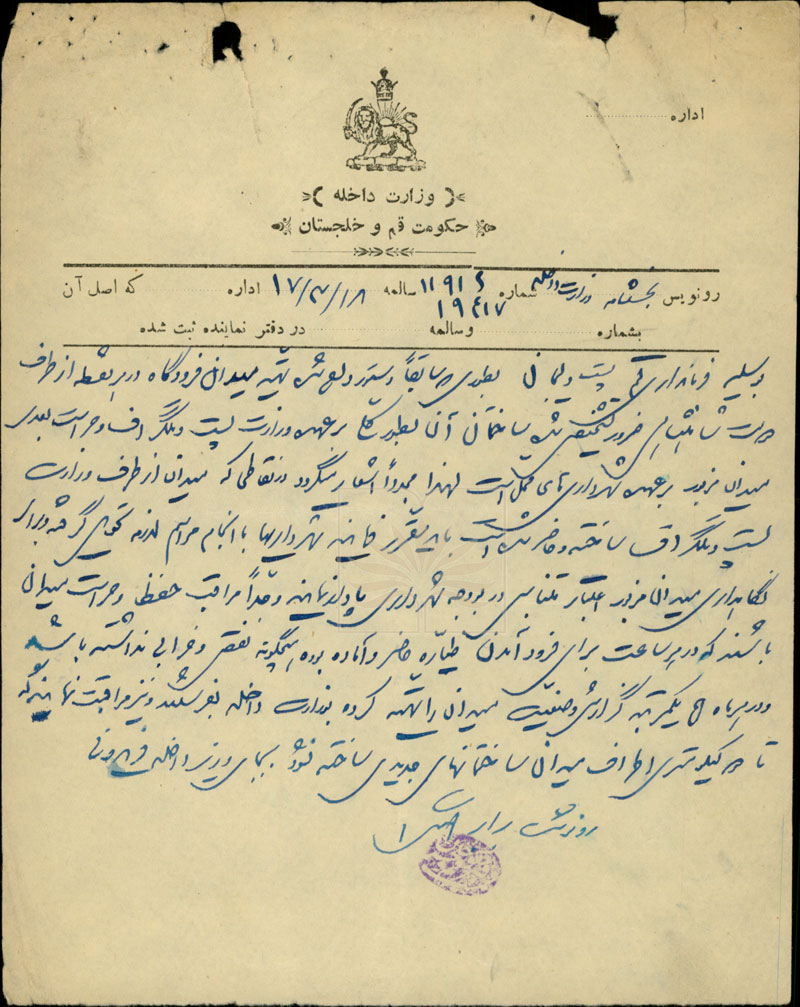 اداره
وزارت داخله
حکومت قم و خلجستان
رونویس بخشنامه وزارت داخله شماره ۱۱۹۱۲ سالمه ۱۷/۳/۱۸ اداره که اصل آن
۱۹۴۱۷
بشماره وسالمه در دفتر نماینده ثبت شده
بوسیله فرمانداری قم سابقاً دستور تهیه میدان فرودگاه در هر نقطه از طرف
ساختمان آن بطور کلی بر عهده وزارت پست و تلگراف و حراست بعدی
میدان مزبور بر عهده شهرداری های محل است لهذا مجدداً اشعار میگردد در نقاطی که میدان از طرف وزارت
پست و تلگراف ساخته و حاضر شده است باید مقرر فرمایند شهرداریها با انجام مراسم لازمه تحویل گرفته و برای
نگاهداری میدان مزبور اعتبار متناسبی در بودجه شهرداری و جداً مراقب حفظ و حراست میدان
باشند که در هر ساعت برای فرود آمدن طیاره حاضر و آماده بوده هیچگونه نقص و خرابی نداشته باشد
و در هر ماه یکمرتبه گزارش وضعیت میدان را تهیه کرده بوزارت داخله بفرستند و نیز مراقبت نمایند که
تا کیلومتری اطراف میدان ساختمانهای جدیدی ساخته نشود بجای وزیر داخله
رونوشت برابر اصل است